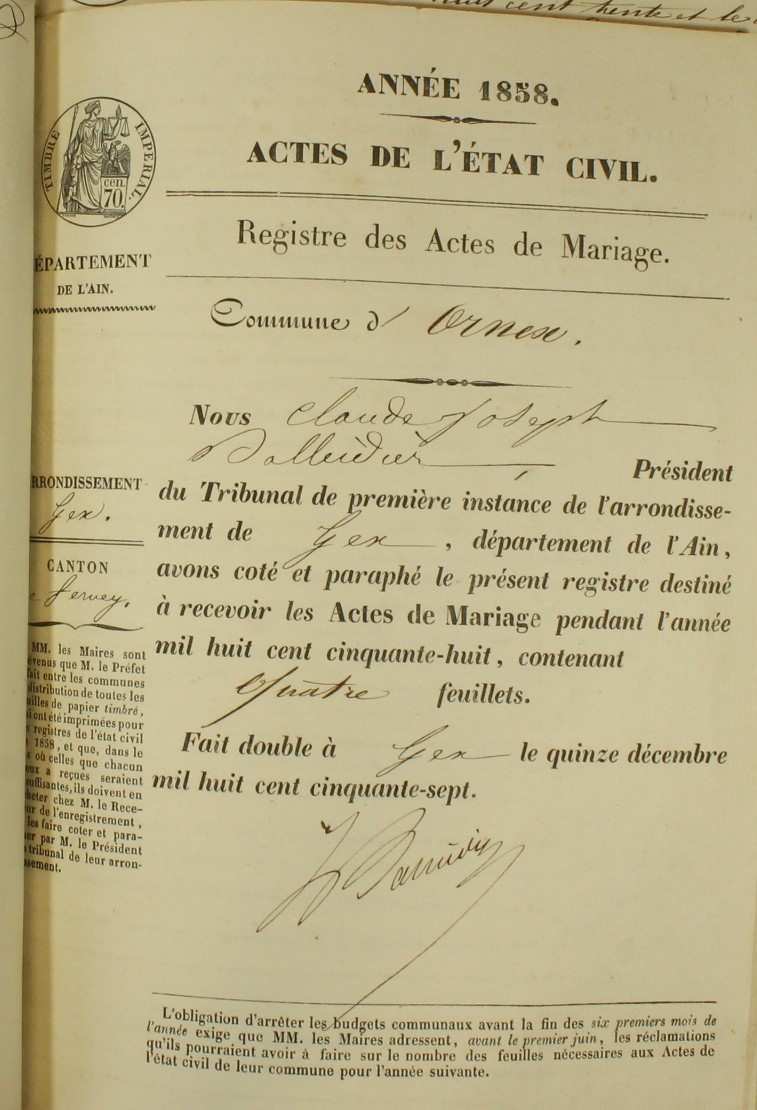 huit cent trente et le
ANNÉE 1858.
ACTES DE L'ÉTAT CIVIL.
TIMBRE IMPÉRIAL.
CEN.
70.
ÉPARTEMENT
DE L'AIN.
Registre des Actes de Mariage.
Commune d' Ornex.
Nous Claude Joseph
Président
du Tribunal de première instance de l'arrondisse-
ment de Gex, département de l'Ain,
avons coté et paraphé le présent registre destiné
à recevoir les Actes de Mariage pendant l'année
mil huit cent cinquante-huit, contenant
Quatre feuillets.
Fait double à Gex le quinze décembre
mil huit cent cinquante-sept.
RRONDISSEMENT
Gex.
CANTON
e Ferney.
MM. les Maires sont
evenus que M. le Préfet
fait entre les communes
distribution de toutes les
illes de papier timbré,
i ont été imprimées pour
s registres de l'état civil
1858, et que, dans le
s où celles que chacun
eux a reçues seraient
uffisantes, ils doivent en
heter chez M. le Rece-
ur de l'enregistrement,
les faire coter et para-
er par M. le Président
tribunal de leur arron-
ssement.
L'obligation d'arrêter les budgets communaux avant la fin des six premiers mois de
l'année exige que MM. les Maires adressent, avant le premier juin, les réclamations
qu'ils pourraient avoir à faire sur le nombre des feuilles nécessaires aux Actes de
l'état civil de leur commune pour l'année suivante.